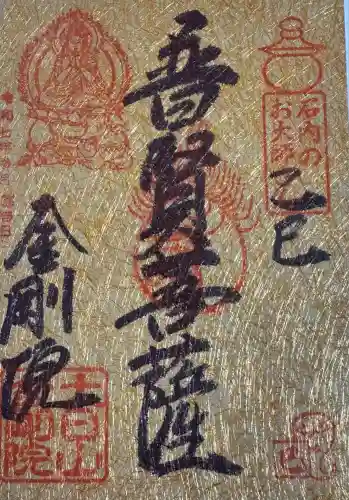 石内の
お大師
乙巳
普賢菩薩
金剛院